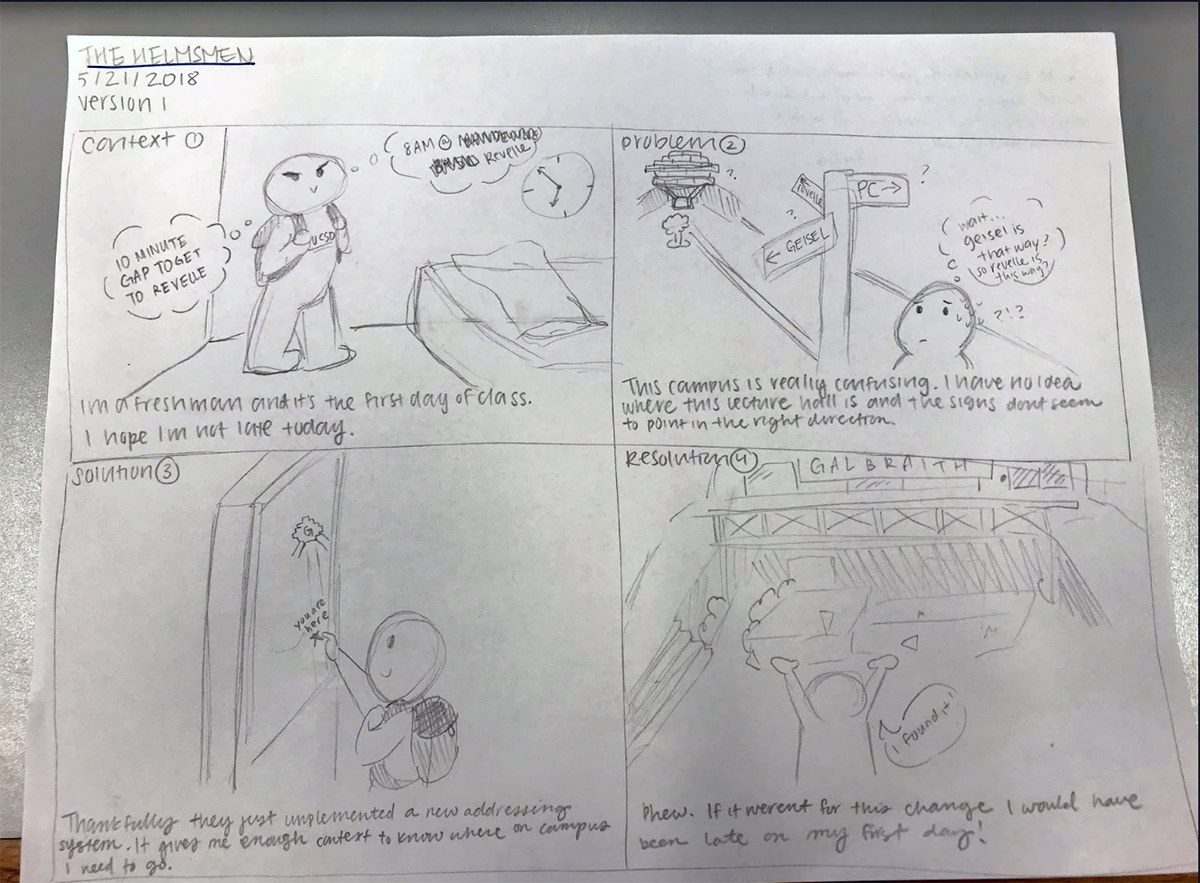 THE HELMSMEN
5/21/2018
version 1
context ①
8AM @
Revelle
10 MINUTE
GAP TO GET
TO REVELLE
UCSD
I'm a freshman and it's the first day of class.
I hope I'm not late today.
problem ②
?
?
revelle
PC →
?
← GEISEL
wait...
geisel is
that way?
so revelle is
this way?
?!?
This campus is really confusing. I have no idea
where this lecture hall is and the signs dont seem
to point in the right direction.
solution ③
G
you are
here
Thankfully they just implemented a new addressing
system. It gives me enough context to know where on campus
I need to go.
Resolution ④
GALBRAITH
I found it!
Phew. If it werent for this change I would have
been late on my first day!